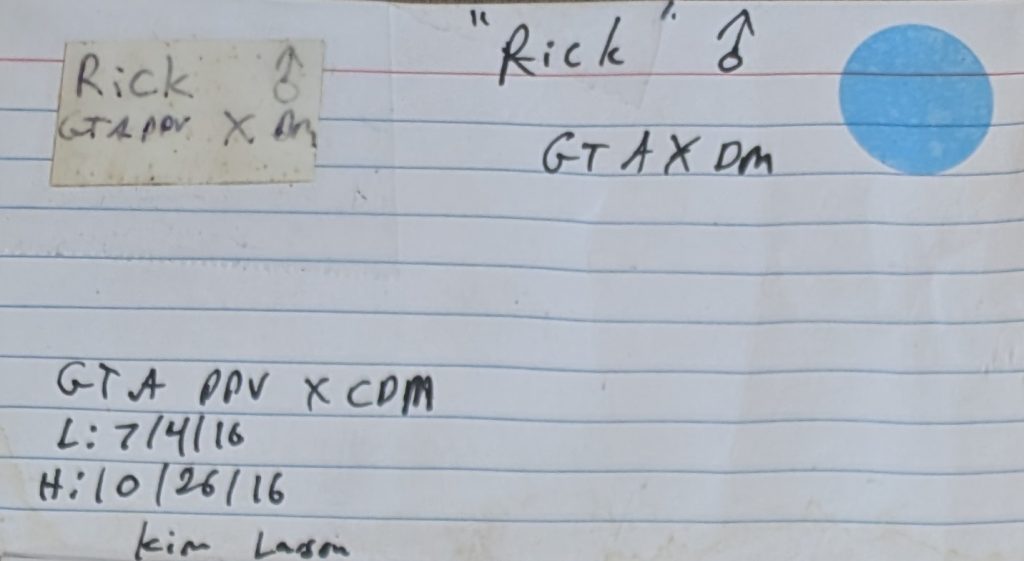 "Rick" ♂
Rick ♂
GTA PPV X Dm
GTA X DM
GTA PPV X CDM
L: 7/4/16
H: 10/26/16
Kim Larson